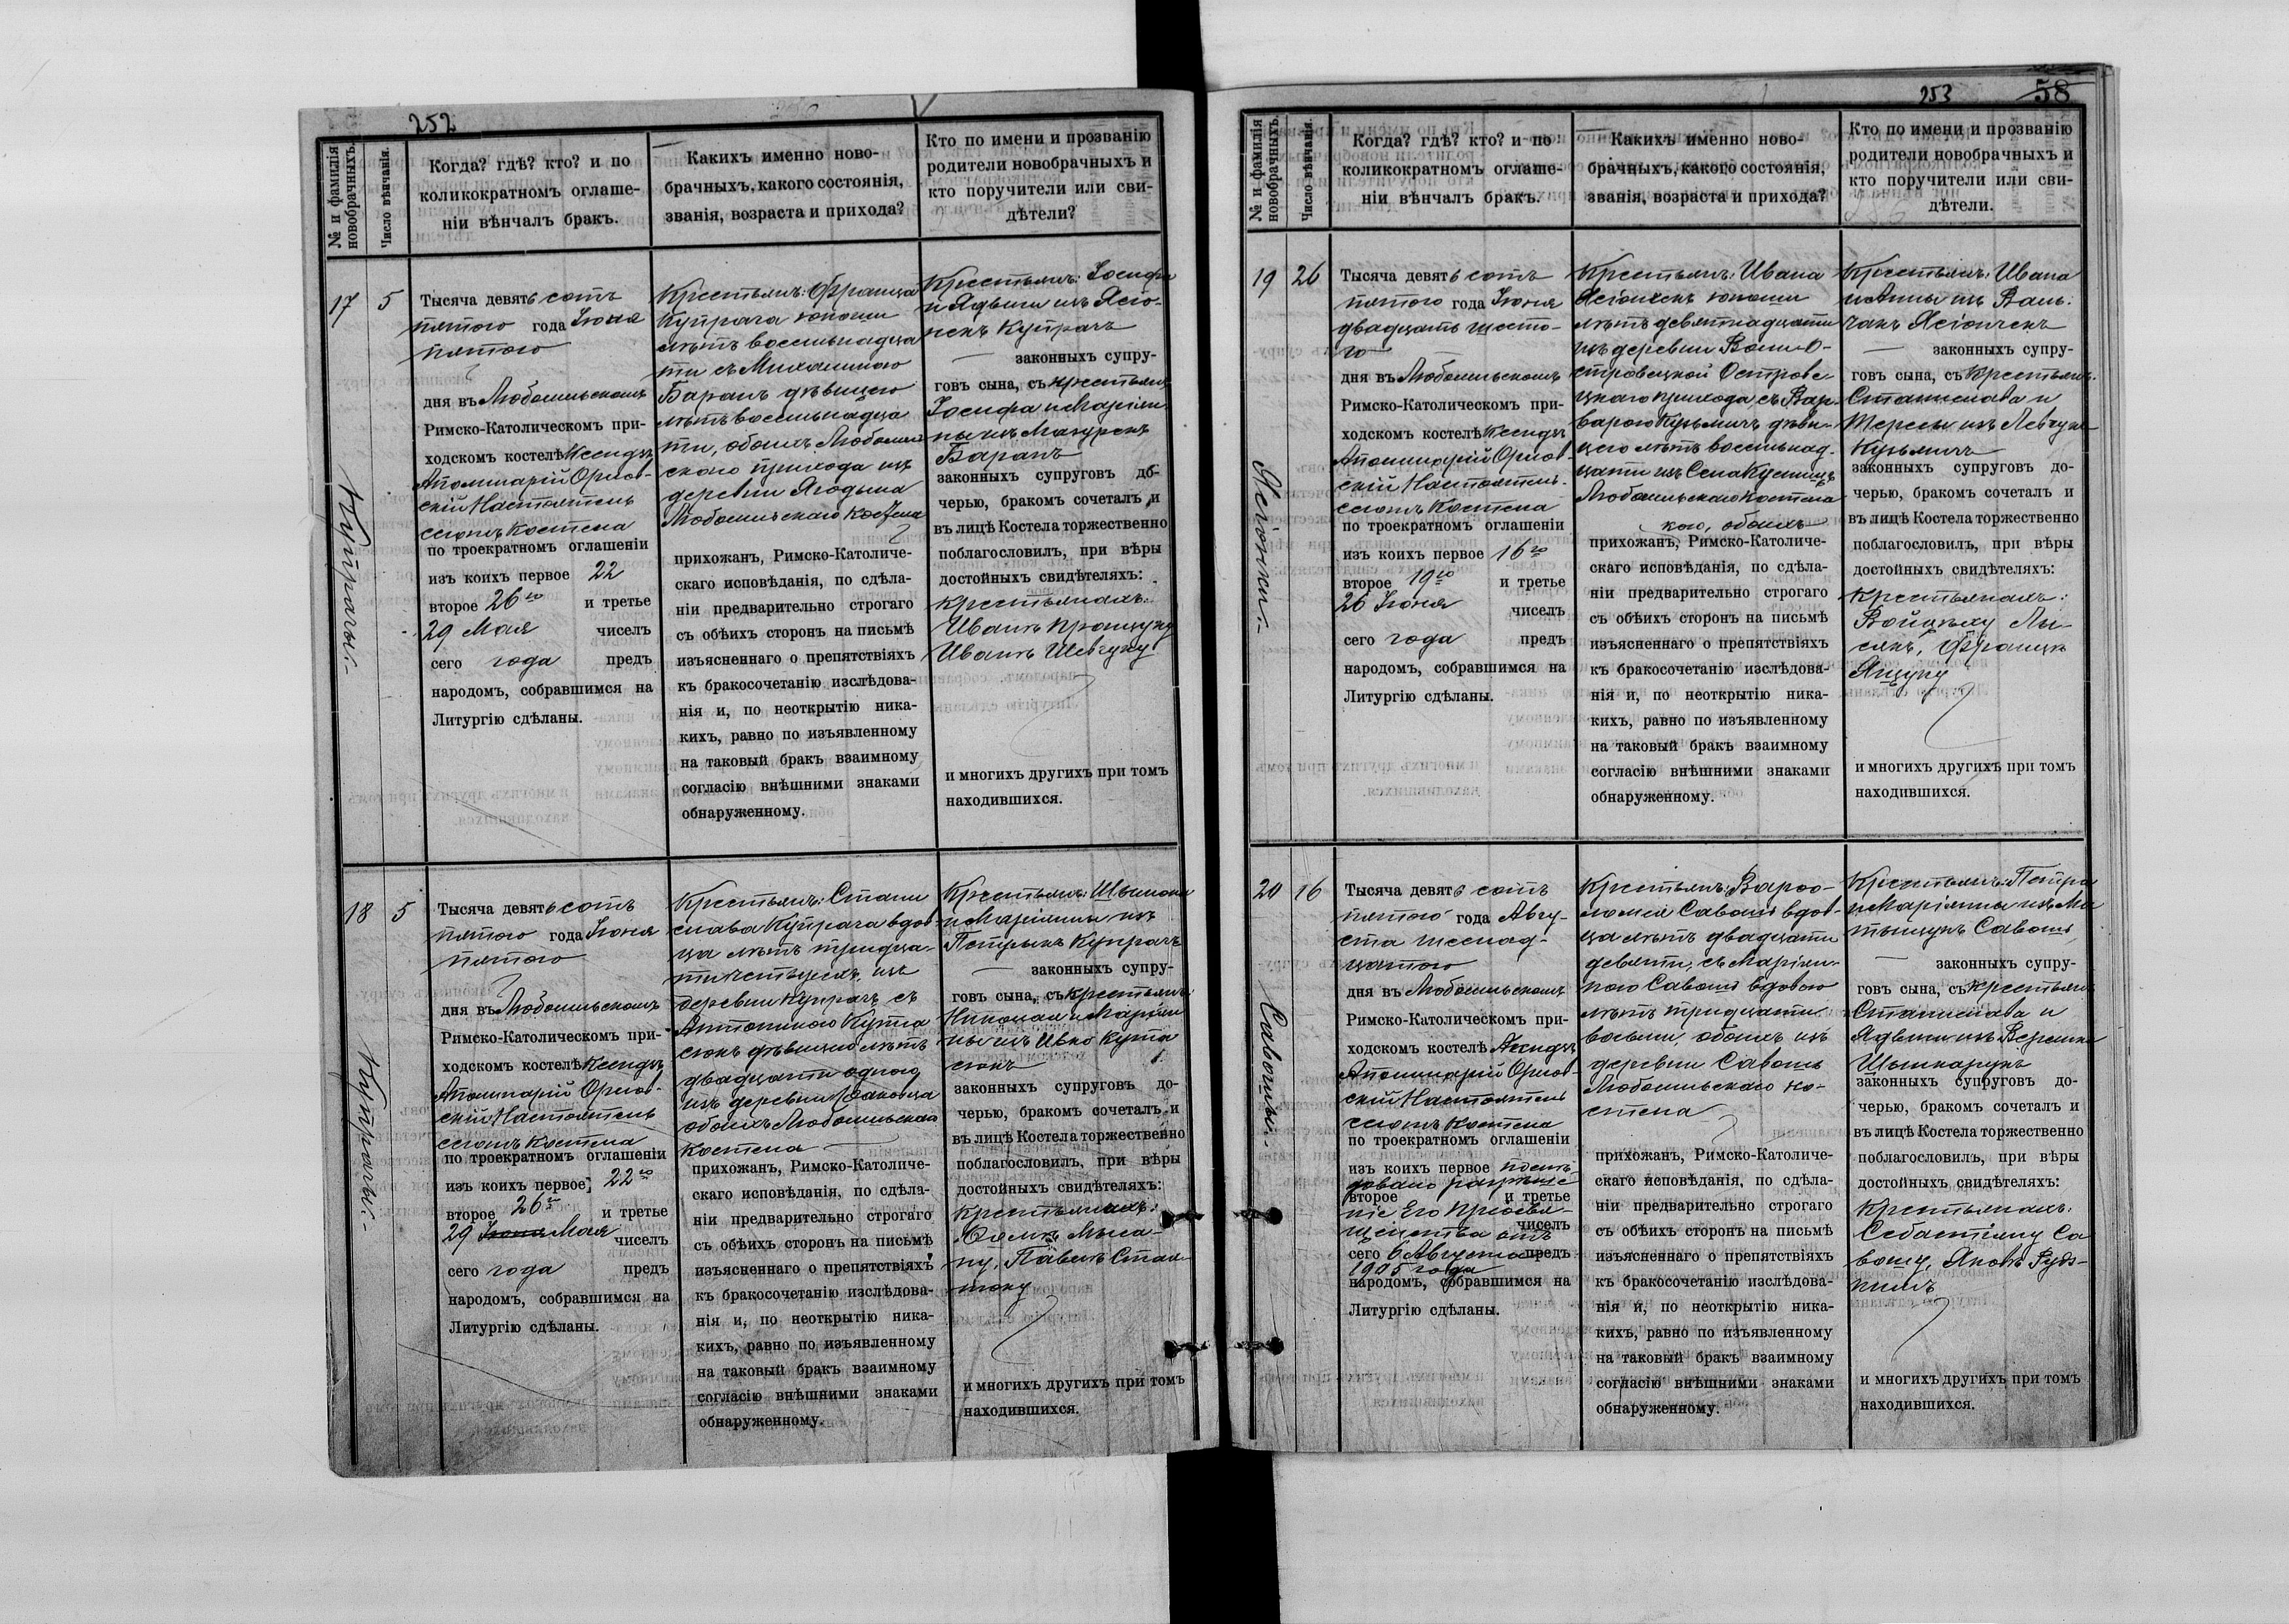 252
№ и фамилія новобрачныхъ.
Число вѣнчанія.
Когда? гдѣ? кто? и по
коликократномъ оглаше-
ніи вѣнчалъ бракъ.
Какихъ именно ново-
брачныхъ, какого состоянія,
званія, возраста и прихода?
Кто по имени и прозванію
родители новобрачныхъ и
кто поручители или сви-
дѣтели?
17
5
Тысяча девятьсотъ
пятого года Іюня
пятого
дня въ Любомльскомъ
Римско-Католическомъ при-
ходскомъ костелѣ Ксендзъ
Аполинарій Орлов-
скій Настоятель
сегожъ костела
по троекратномъ оглашеніи
изъ коихъ первое 22
второе 26го и третье
29 Мая чиселъ
сего года предъ
народомъ, собравшимся на
Литургію сдѣланы.
Крестьянъ: Франца
Купрача юноши
лѣтъ восемьнадца
ти съ Михалиною
Баранъ дѣвицею
лѣтъ восемьнадца
ти, обоихъ Любомль
скаго прихода изъ
деревни Ягодына
Любомльскаго костела
прихожанъ, Римско-Католиче-
скаго исповѣданія, по сдѣла-
ніи предварительно строгаго
съ обѣихъ сторонъ на письмѣ
изъясненнаго о препятствіяхъ
къ бракосочетанію изслѣдова-
нія и, по неоткрытію ника-
кихъ, равно по изъявленному
на таковый бракъ взаимному
согласію внѣшними знаками
обнаруженному.
Крестьянъ: Іосифа
и Ядвиги изъ Ясіо-
некъ Купрачъ
законныхъ супру-
говъ сына, съ крестьянъ
Іосифа и Маріян
ны изъ Мазурекъ
Баранъ
законныхъ супруговъ до-
черью, бракомъ сочеталъ и
въ лицѣ Костела торжественно
поблагословилъ, при вѣры
достойныхъ свидѣтеляхъ:
крестьянахъ:
Иванъ
Иванъ Шевчуку
и многихъ другихъ при томъ
находившихся.
Купрачы.
18
5
Тысяча девятьсотъ
пятого года Іюня
пятого
дня въ Любомльскомъ
Римско-Католическомъ при-
ходскомъ костелѣ Ксендзъ
Аполинарій Орлов-
скій Настоятель
сегожъ костела
по троекратномъ оглашеніи
изъ коихъ первое 22го
второе 26го и третье
29 Іюня Мая чиселъ
сего года предъ
народомъ, собравшимся на
Литургію сдѣланы.
Крестьянъ: Стани
слава Купрача вдов
ца лѣтъ тридца-
ти четырехъ, изъ
деревни Купраче съ
Антониною Купта
сюкъ дѣвицею лѣтъ
двадцати одного
изъ деревни
обоихъ Любомльскаго
костела
прихожанъ, Римско-Католиче-
скаго исповѣданія, по сдѣла-
ніи предварительно строгаго
съ обѣихъ сторонъ на письмѣ
изъясненнаго о препятствіяхъ
къ бракосочетанію изслѣдова-
нія и, по неоткрытію ника-
кихъ, равно по изъявленному
на таковый бракъ взаимному
согласію внѣшними знаками
обнаруженному.
Крестьянъ: Шымона
и Маріянны изъ
Петрыкъ Купрачъ
законныхъ супру-
говъ сына, съ крестьянъ
Николая и Маріян
ны изъ Ивко Купта
сюкъ
законныхъ супруговъ до-
черью, бракомъ сочеталъ и
въ лицѣ Костела торжественно
поблагословилъ, при вѣры
достойныхъ свидѣтеляхъ:
крестьянахъ:
Павелъ
и многихъ другихъ при томъ
находившихся.
Купрачы.
253
58
№ и фамилія новобрачныхъ.
Число вѣнчанія.
Когда? гдѣ? кто? и по
коликократномъ оглаше-
ніи вѣнчалъ бракъ.
Какихъ именно ново-
брачныхъ, какого состоянія,
званія, возраста и прихода?
Кто по имени и прозванію
родители новобрачныхъ и
кто поручители или сви-
дѣтели.
19
26
Тысяча девятьсотъ
пятого года Іюня
двадцать шесто-
го
дня въ Любомльскомъ
Римско-Католическомъ при-
ходскомъ костелѣ Ксендзъ
Аполинарій Орлов-
скій Настоятель
сегожъ костела
по троекратномъ оглашеніи
изъ коихъ первое 16го
второе 19го и третье
26 Іюня чиселъ
сего года предъ
народомъ, собравшимся на
Литургію сдѣланы.
Крестьянъ: Ивана
Ясіончекъ юноши
лѣтъ девятнадцати
изъ деревни Воли-О-
стровецкой Островец
цкаго прихода, съ Вар-
варою Кузьмичъ дѣви-
цею лѣтъ восемьнад-
цати изъ Села Кусницъ
Любомльскаго костела
кого, обоихъ
прихожанъ, Римско-Католиче-
скаго исповѣданія, по сдѣла-
ніи предварительно строгаго
съ обѣихъ сторонъ на письмѣ
изъясненнаго о препятствіяхъ
къ бракосочетанію изслѣдова-
нія и, по неоткрытію ника-
кихъ, равно по изъявленному
на таковый бракъ взаимному
согласію внѣшними знаками
обнаруженному.
Крестьянъ: Ивана
и Анны изъ
Ясіончекъ
законныхъ супру-
говъ сына, съ крестьянъ:
Станислава и
Терезы изъ Левчукъ
Кузьмичъ
законныхъ супруговъ до-
черью, бракомъ сочеталъ и
въ лицѣ Костела торжественно
поблагословилъ, при вѣры
достойныхъ свидѣтеляхъ:
крестьянахъ:
Войцѣху Лы-
сякъ, Францъ
Яцуку
и многихъ другихъ при томъ
находившихся.
20
16
Тысяча девятьсотъ
пятого года Авгу-
ста шеснад-
цатого
дня въ Любомльскомъ
Римско-Католическомъ при-
ходскомъ костелѣ Ксендзъ
Аполинарій Орлов-
скій Настоятель
сегожъ костела
по троекратномъ оглашеніи
изъ коихъ первое послѣ-
довало разрѣше
второе и третье
ніе Его Преосвя-
щенства отъ чиселъ
сего 6 Августа предъ
1905 года
народомъ, собравшимся на
Литургію сдѣланы.
Крестьянъ: Варѳо-
ломея Савошъ вдов-
ца лѣтъ двадцати
девяти, съ Маріян-
ною Савошъ вдовою
лѣтъ тридцати
восьми, обоихъ изъ
деревни Савошъ
Любомльскаго ко-
стела
прихожанъ, Римско-Католиче-
скаго исповѣданія, по сдѣла-
ніи предварительно строгаго
съ обѣихъ сторонъ на письмѣ
изъясненнаго о препятствіяхъ
къ бракосочетанію изслѣдова-
нія и, по неоткрытію ника-
кихъ, равно по изъявленному
на таковый бракъ взаимному
согласію внѣшними знаками
обнаруженному.
Крестьянъ: Петра
и Маріянны изъ Ма
тыщукъ Савошъ
законныхъ супру-
говъ сына, съ крестьянъ
Станислава и
Ядвиги изъ
законныхъ супруговъ до-
черью, бракомъ сочеталъ и
въ лицѣ Костела торжественно
поблагословилъ, при вѣры
достойныхъ свидѣтеляхъ:
крестьянахъ:
Себастіяну Са
вошу, Яковъ
и многихъ другихъ при томъ
находившихся.
Савошы.